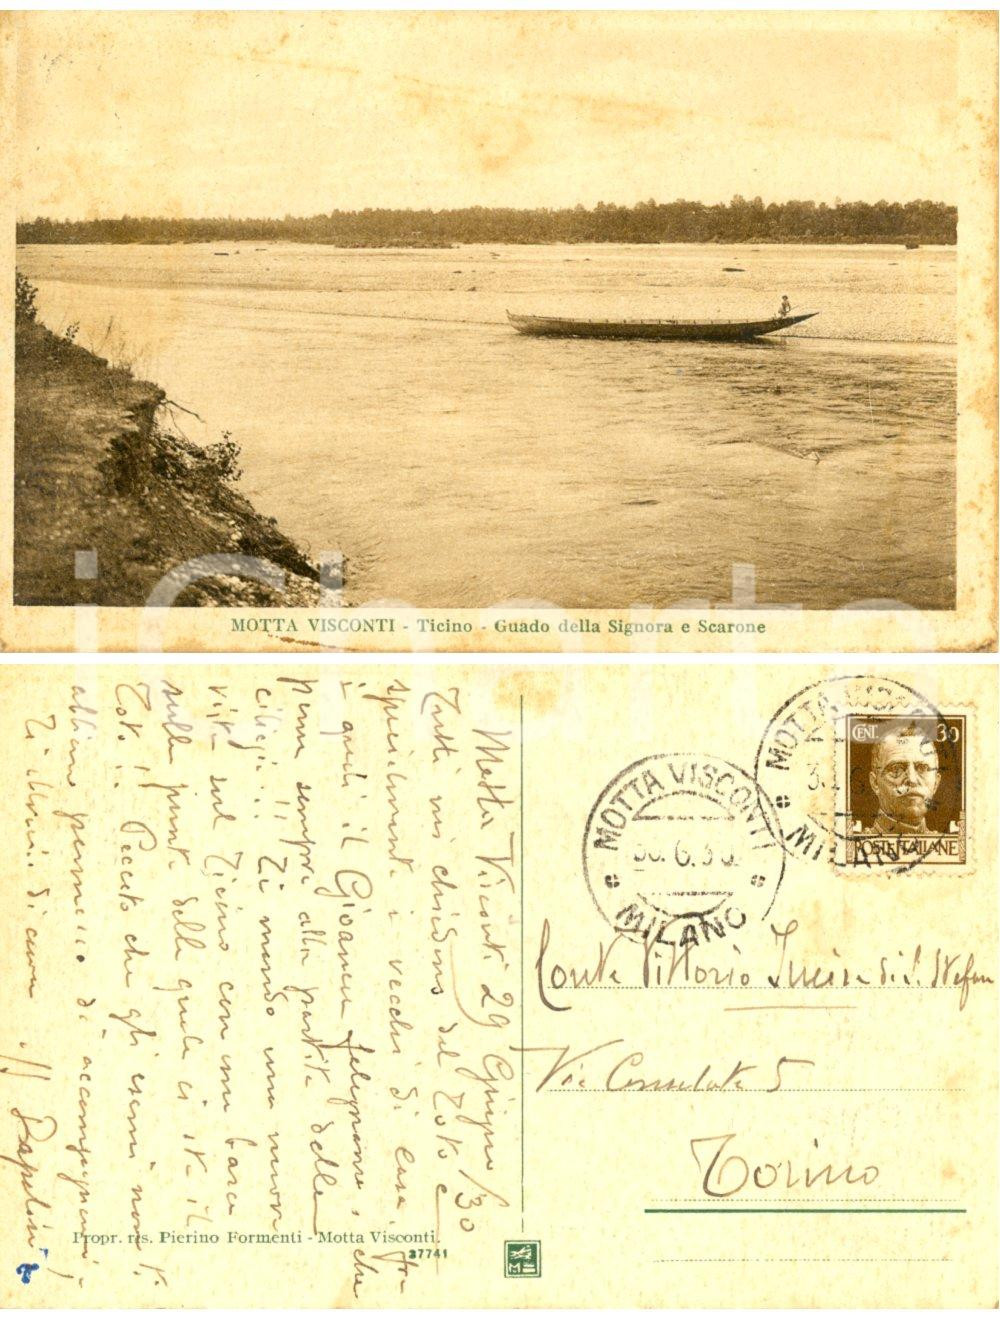 MOTTA VISCONTI - Ticino - Guado della Signora e Scarone
Motta Visconti 29 Giugno/30
Tutti mi chiedono del Toto e
specialmente i vecchi di casa, fra
i quali il Giovanni falegname, che
pensa sempre alla partita delle
ciliegie!! Ti mando una nuova
vista sul Ticino con una barca
sulla punta della quale ci sta il
Toto!! Peccato che gli esami non ti
abbiano permesso di accompagnarmi!
Ti abbraccio di cuore
MOTTA VISCONTI
30.6.30
MILANO
MOTTA VISCONTI
MILANO
CENT. 30
POSTE ITALIANE
Conte Vittorio Incisa di S. Stefano
Via Consolata 5
Torino
Propr. ris. Pierino Formenti - Motta Visconti.
37741
M